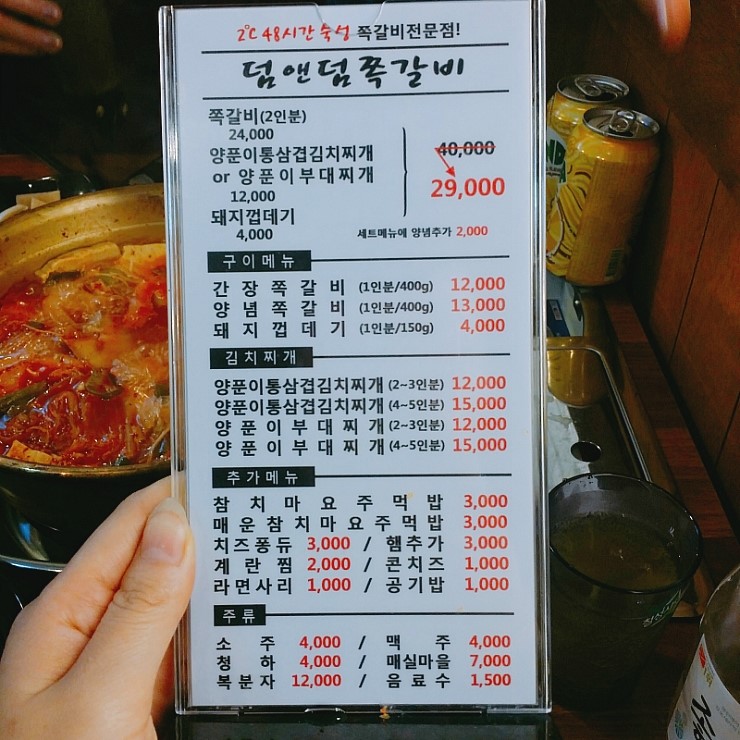 2°C 48시간 숙성 쪽갈비전문점!
덤앤덤쪽갈비
쪽갈비(2인분)
24,000
양푼이통삼겹김치찌개
or 양푼이부대찌개
12,000
돼지껍데기
4,000
40,000
29,000
세트메뉴에 양념추가 2,000
구이메뉴
간장쪽갈비 (1인분/400g) 12,000
양념쪽갈비 (1인분/400g) 13,000
돼지껍데기 (1인분/150g) 4,000
김치찌개
양푼이통삼겹김치찌개 (2~3인분) 12,000
양푼이통삼겹김치찌개 (4~5인분) 15,000
양푼이부대찌개 (2~3인분) 12,000
양푼이부대찌개 (4~5인분) 15,000
추가메뉴
참치마요주먹밥 3,000
매운참치마요주먹밥 3,000
치즈퐁듀 3,000 / 햄추가 3,000
계란찜 2,000 / 콘치즈 1,000
라면사리 1,000 / 공기밥 1,000
주류
소주 4,000 / 맥주 4,000
청하 4,000 / 매실마을 7,000
복분자 12,000 / 음료수 1,500